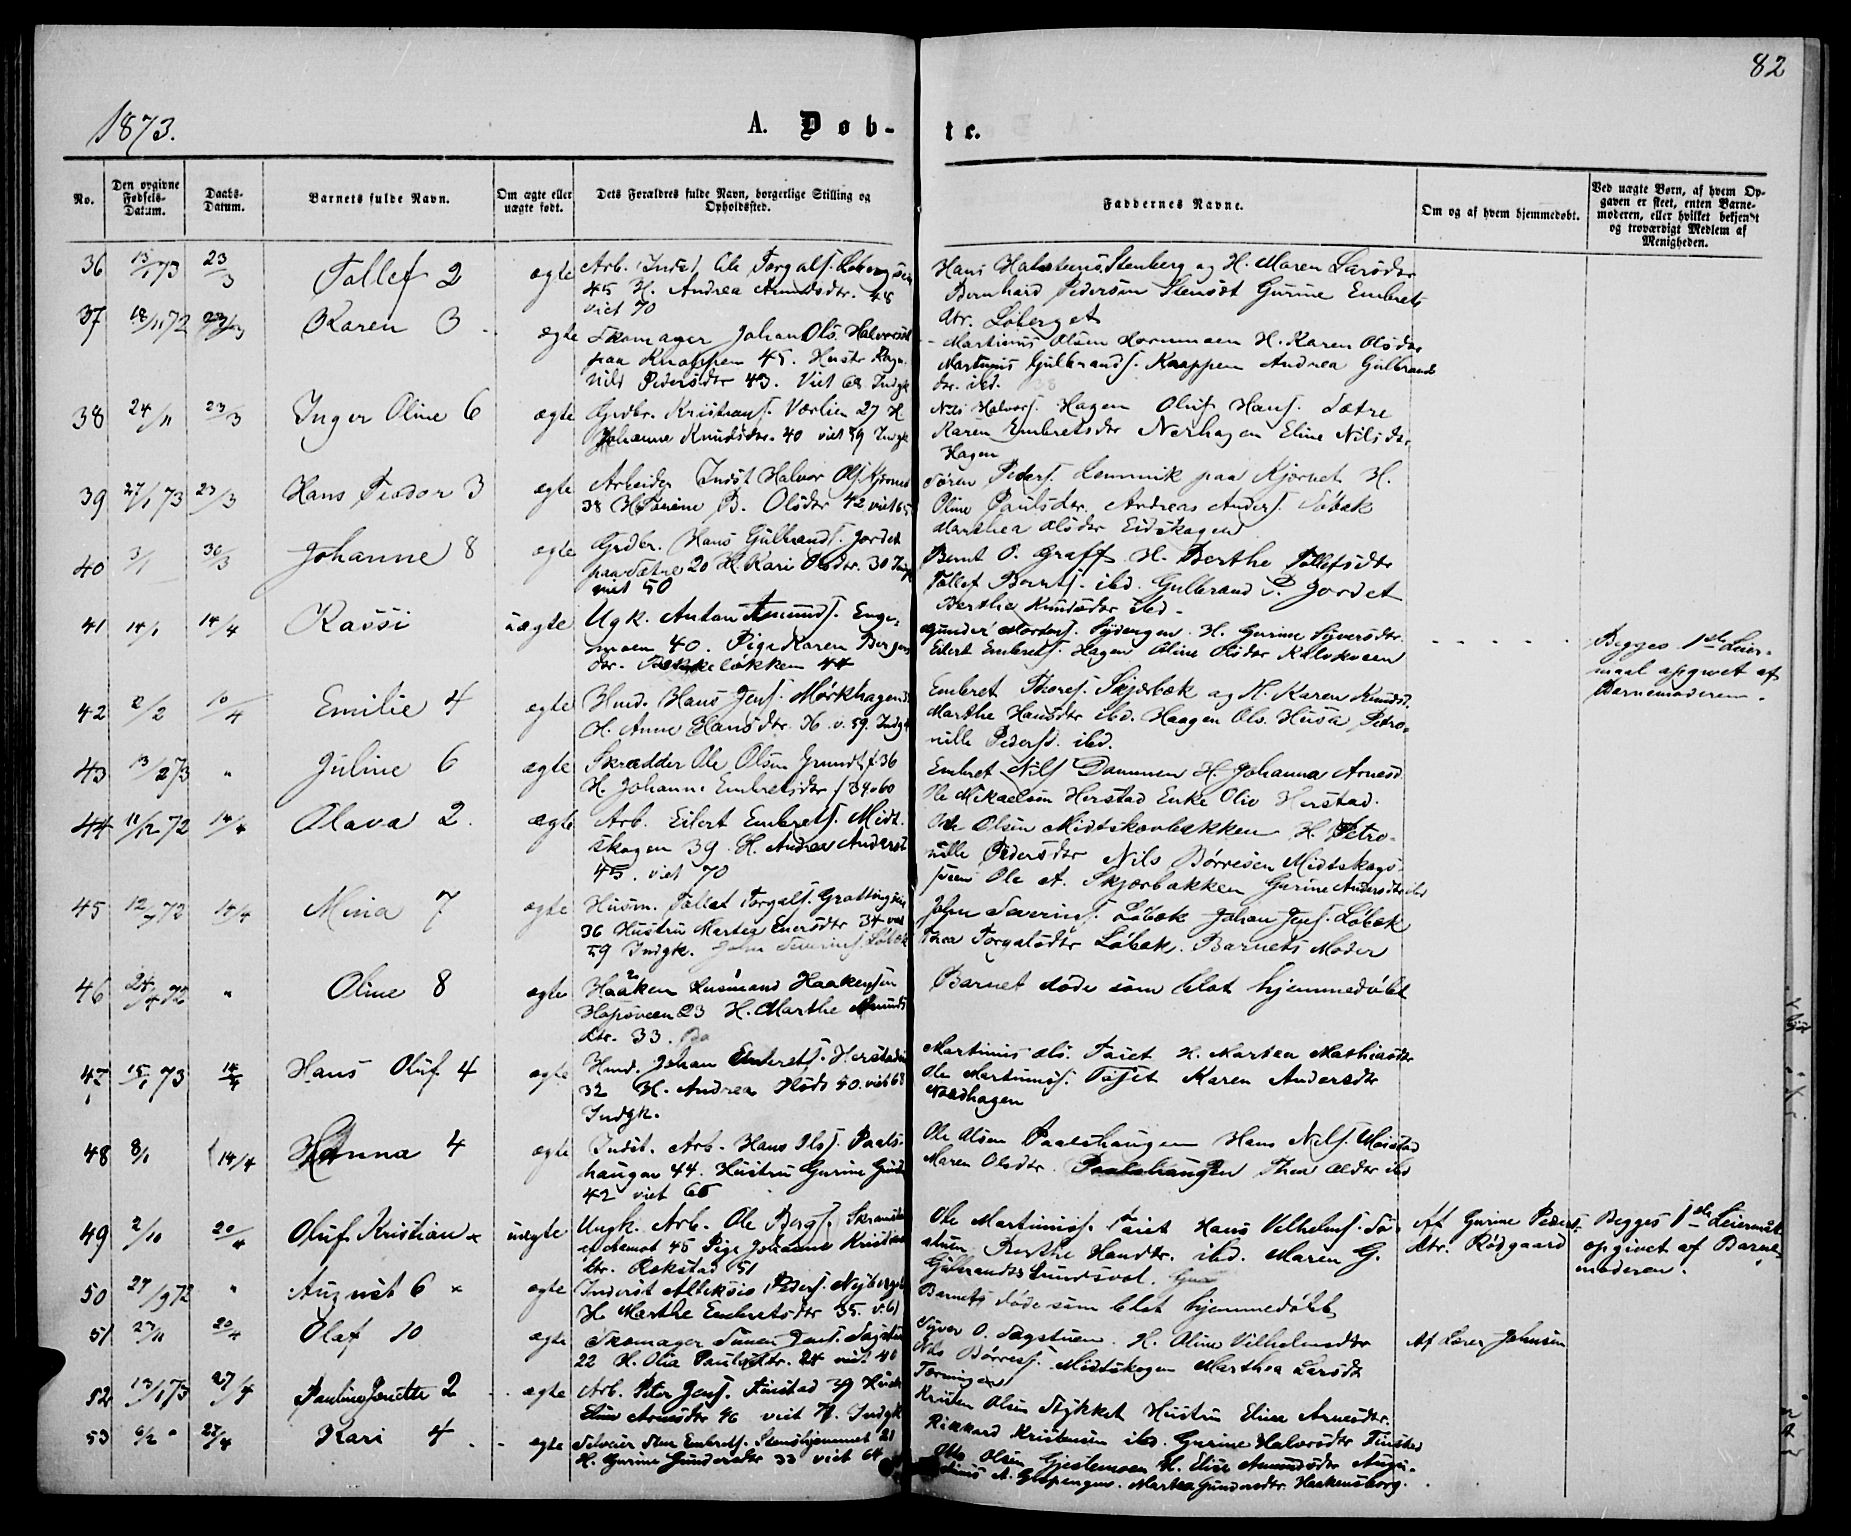 82
1873.
A. Døb- te.
No.
Den opgivne Fødsels-Datum.
Daabs-Datum.
Barnets fulde Navn.
Om ægte eller uægte født.
Dets Forældres fulde Navn, borgerlige Stilling og Opholdssted.
Faddernes Navne.
Om og af hvem hjemmedøbt.
Ved uægte Børn, af hvem Opgaven er skeet, enten Barnemoderen, eller hvilket bekjendt og troværdigt Medlem af Menigheden.
36 13/1 73 23/3 Tollef 2 ægte Arb. Indst Ole Torgals.
45 H. Andrea Amundsdtr. 48
viet 70
Hans Halstens. Stenberg og H. Maren Larsdtr
Bernhard Pedersen Gurine Embrets
dtr. Løberget
37 18/11 72 23/3 Karen 3 ægte Skomager Johan Ols. Halvorsët
paa Knappen 45. Hustr Ragn
hild Pedersdtr 43. Viet 68 Indgk
Martinus Olsen Hornmoen H. Karen Olsdtr
Martinus Gulbrands. Knappen Andrea Gulbrands
dtr. ibd.
38 24/11 23/3 Inger Oline 6 ægte Grdbr. Kristians. Værlien 27 H
Johanne Knudsdtr. 40 viet 59 Indgk
Nils Halvors. Hagen Oluf Hans. Sætre
Karen Embretsdtr Nerhagen Eline Nilsdtr
Hagen
39 27/1 73 23/3 Hans Peodor 3 ægte Arbeider Indst Halvor Ols. Kjørnet
38 H. B. Olsdtr 42 viet 65
Søren Peders. paa Kjørnet H.
Oline Paulsdtr. Andreas Anders. Søbak
Marthea Olsdtr Eidskogen
40 3/1 30/3 Johanne 8 ægte Grdbr. Hans Gulbrands. Jordet
paa Sætre 20 H. Kari Olsdtr. 30 Indgk
viet 50
Bernt O. Graff H. Berthe Tollefsdtr
Tollef Bernts. ibd. Gulbrand P. Jordet
Berthe Knudsdtr ibd.
41 14/1 14/4 Kassi uægte Ugk. Anton Amunds. Enge-
moen 40. Pige Karen Berger
dtr. 44
Gunder Mortens. H. Gurine Syversdtr
Eilert Embrets. Hagen Oline Olsdtr Kalvkveen
Begges 1ste Leier-
maal opgivet af
Barnemoderen.
42 2/2 10/4 Emilie 4 ægte Hmd. Hans Jens. Mørkhagen
H. Anne Hansdtr. 36. v. 59. Indgk
Embret Thores. Skjærbæk og H. Karen Knudsd.
Marthe Hansdtr ibd. Haagen Ols. Husa Petro-
nille Pedersd. ibd.
43 13/2 73 " Juline 6 ægte Skrædder Ole Olsen Grundt f. 36
H. Johanne Embretsdtr f 34 v 60
Embret Nils. Dammen H. Johanna Arnesd.
Ole Mikaelsen Herstad Enke Oliv Herstad.
44 11/12 72 14/4 Olava 2. ægte Arb. Eilert Embrets. Midt-
skogen 39. H. Andrea Andersd
45. viet 70
Ole Olsen Midtskovbakken H. Petro-
nille Pedersdtr Nils Børresen Midtskogs-
Ole A. Skjærbakken Gurine Andersdtr ibd
45 12/ 72 14/4 Mina 7 ægte Husm. Tollef Torgals.
36 Hustru Martea Enersdtr 34 viet
59 Indgk.
John Severins. Løbæk Johan Jens. Løbæk
Thea Torgalsdtr Løbak. Barnets Moder
46 24/ 72 " Oline 8 ægte Haaken Husmand Haakensen
23 H. Marthe Amunds
dtr. 33.
Barnet døde som blot hjemmedøbt
47 15/1 73 14/4 Hans Oluf 4 ægte Hmd. Johan Embrets. Herstad
32 H. Andrea Olsd 50. viet 63
Indgk.
Martinus Ols. Taiet H. Martea Mathiasdtr
Ole Martinus. Tajet Karen Andersdtr
Nordhagen
48 8/1 14/4 Hanna 4 ægte Indst. Arb. Hans Ols. Paals-
haugen 44. Hustru Gurine Gund
42 viet 65
Ole Olsen Paalshaugen Hans Nils. Moistad
Maren Olsdtr. Paalshaugen Thea Olsdtr ibd
49 2/10 20/4 Oluf Kristian x uægte Ungk. Arb. Ole Bergs.
45 Pige Johanne Kristians
dtr. Rokstad 51
Ole Martinuss. Taiet Hans Vilhelms. Sø-
Berthe Hansdtr. ibd. Maren G.
Gulbrandsd Sundsvol.
Af Gurine Peders-
dtr. Rødgaard
Begges 1ste Leiermaal
opgivet af Barne-
moderen.
50 27/9 72 " August 6 x ægte Inderst Peders. Nyberget
H. Marthe Embretsdtr 35. v. 61
Barnet døde som blot hjemmedøbt
51 27/11 20/4 Olaf 10 ægte Skomager Simen Jens. Sagstuen
22 H. Olia Paulsdtr. 24 viet 48
Syver O. Sagstuen. H. Oline Vilhelmsdtr
Nils Børress. Midtskogen Marthea Larsdtr
Af Lærer Johnsen
52 13/1 73 27/4 Pauline Jenette 2 ægte Arb. Peter Jens. Finstad 39 Hustr
Eline Arnesdtr 46 viet 71. Indgk
Kristen Olsen Stykket Hustru Eline Arnesdtr.
Rikkard Kristensen ibd. Gurine Halvorsdtr Finstad
53 6/2 " 27/4 Kari 4. ægte Selveier Embrets. Stenshjemmet 21
H. Gurine Gundersdtr 33 viet 64
Otto Olsen Gjestemoen H. Elise Amundsdtr
Martea Gundersdtr. Haakensborg.